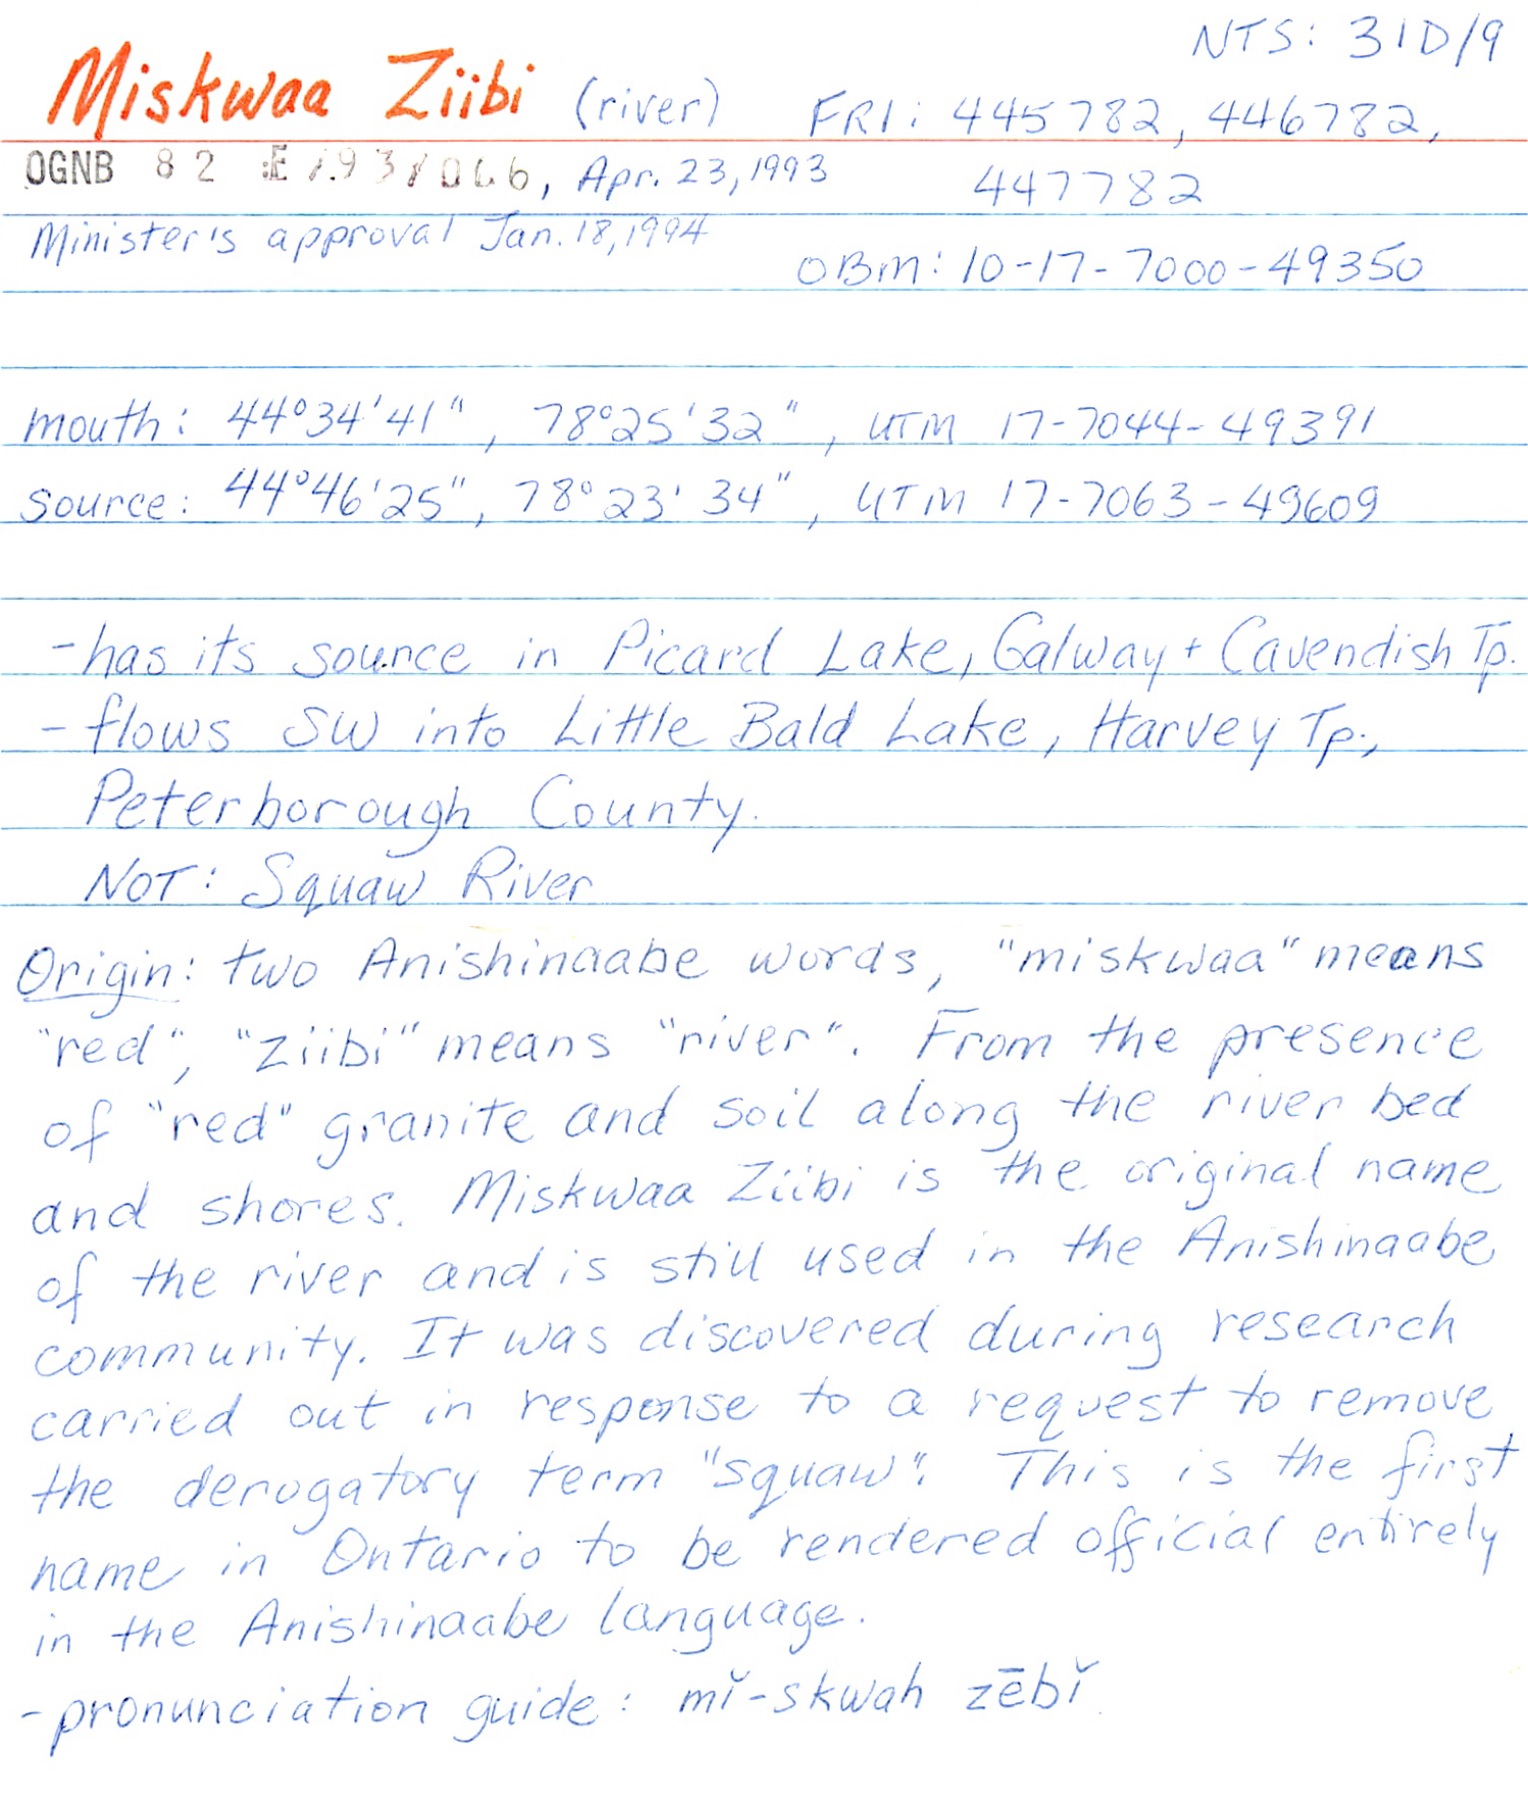 NTS: 31D/9
Miskwaa Ziibi (river) FRI: 445782, 446782,
OGNB 82 E/93/066, Apr. 23, 1993 447782
Minister's approval Jan. 18, 1994
OBM: 10-17-7000-49350
mouth: 44°34'41", 78°25'32", UTM 17-7044-49391
source: 44°46'25", 78°23'34", UTM 17-7063-49609
- has its source in Picard Lake, Galway + Cavendish Tp.
- flows SW into Little Bald Lake, Harvey Tp.,
Peterborough County.
NOT: Squaw River
Origin: two Anishinaabe words, "miskwaa" means
"red", "ziibi" means "river". From the presence
of "red" granite and soil along the river bed
and shores. Miskwaa Ziibi is the original name
of the river and is still used in the Anishinaabe
community. It was discovered during research
carried out in response to a request to remove
the derogatory term "squaw". This is the first
name in Ontario to be rendered official entirely
in the Anishinaabe language.
- pronunciation guide: mĭ-skwah zēbĭ